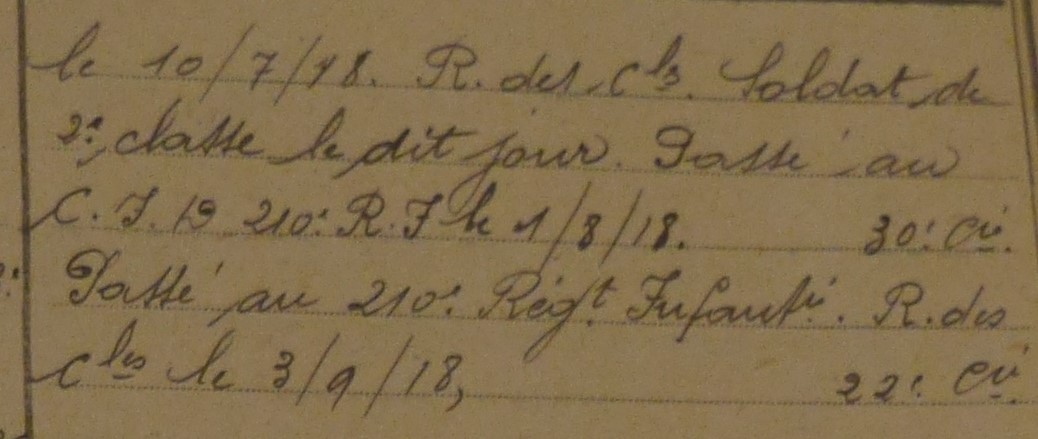 le 10/7/18. R. des Cls. Soldat de
2e classe le dit jour. Passé au
C. I. D 210e R. I le 1/8/18. 30e Cie.
Passé au 210e Régt Infantie. R. des
Cles le 3/9/18, 22e Cie